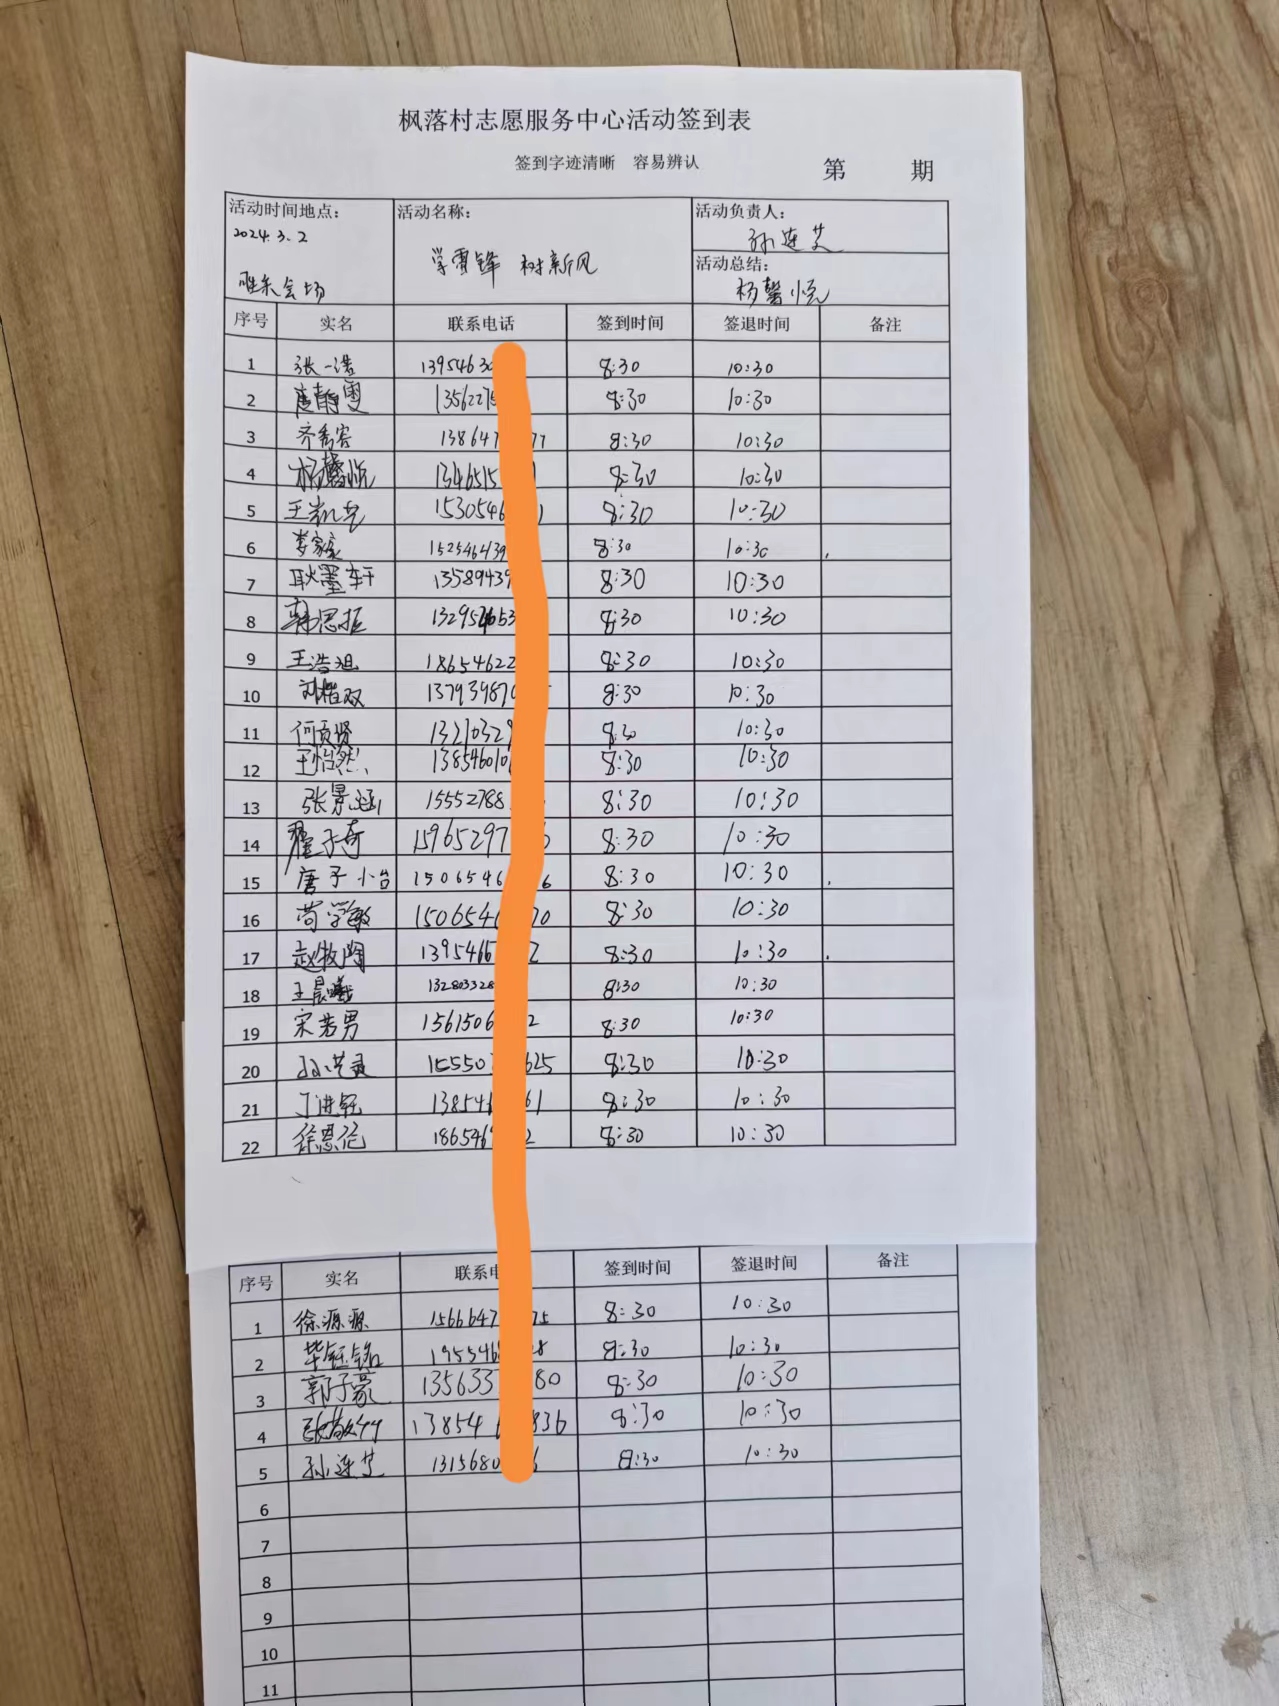 枫落村志愿服务中心活动签到表
签到字迹清晰 容易辨认
第 期
活动时间地点： 活动名称： 活动负责人：
2024.3.2 孙连芝
学雷锋 树新风 活动总结：
会场 杨馨悦
序号 实名 联系电话 签到时间 签退时间 备注
1 张一浩 1395463 8:30 10:30
2 唐静雯 135627 8:30 10:30
3 齐秀容 138647 77 8:30 10:30
4 杨馨悦 1346515 8:30 10:30
5 王凯 1530546 1 8:30 10:30
6 李家 152546439 8:30 10:30
7 耿墨轩 13589439 8:30 10:30
8 韩思振 8:30 10:30
9 王浩 18654622 8:30 10:30
10 刘 双 137939870 8:30 10:30
11 何贡贤 1321032 8:30 10:30
12 王怡然 13854601 8:30 10:30
13 张景涵 15552788 8:30 10:30
14 翟子奇 15965297 8:30 10:30
15 唐子 1506546 6 8:30 10:30
16 苟学敏 150654 70 8:30 10:30
17 赵牧阳 1395466 2 8:30 10:30
18 王晨曦 132803328 8:30 10:30
19 宋若男 1561506 2 8:30 10:30
20 孙 灵 15550 625 8:30 10:30
21 丁进 13854 61 8:30 10:30
22 徐恩 186546 2 8:30 10:30
序号 实名 联系电 签到时间 签退时间 备注
1 徐源源 1566647 75 8:30 10:30
2 毕钰铭 195546 8 8:30 10:30
3 郭子豪 135633 80 8:30 10:30
4 张 13854 836 8:30 10:30
5 孙连芝 1315680 6 8:30 10:30
6
7
8
9
10
11